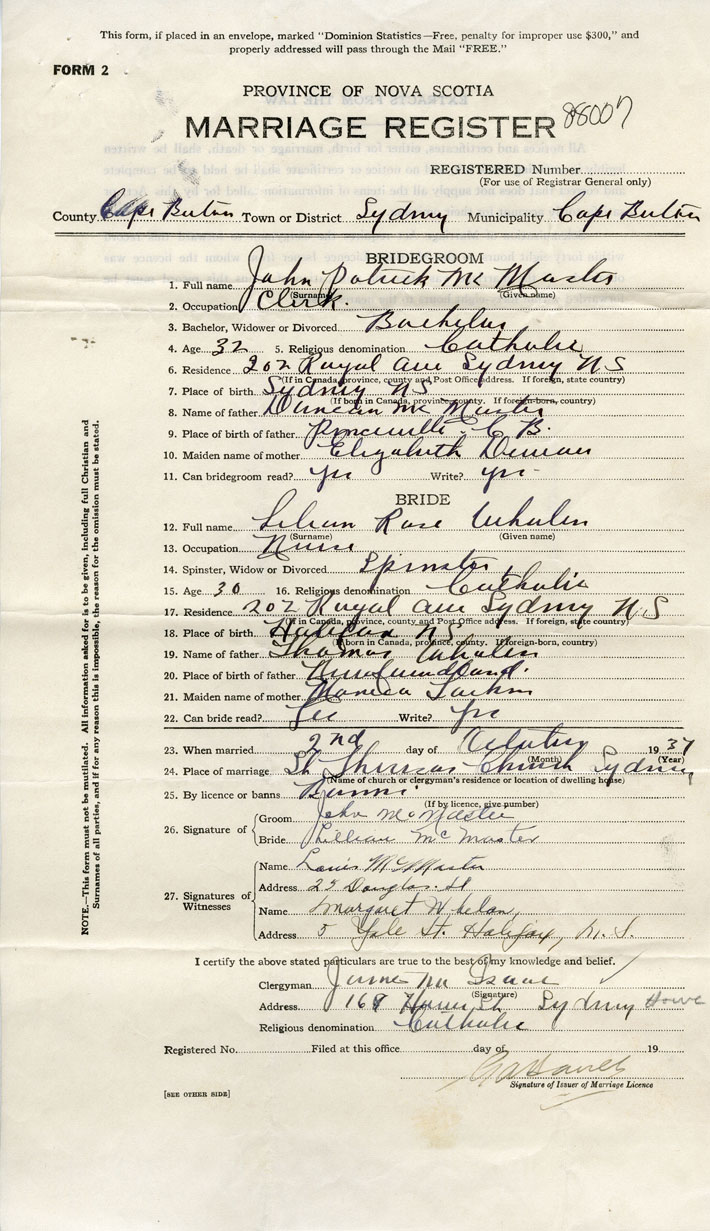 This form, if placed in an envelope, marked "Dominion Statistics—Free, penalty for improper use $300," and
properly addressed will pass through the Mail "FREE."
FORM 2
PROVINCE OF NOVA SCOTIA
MARRIAGE REGISTER 88007
REGISTERED Number
(For use of Registrar General only)
County Cape Breton Town or District Sydney Municipality Cape Breton
BRIDEGROOM
1. Full name John Patrick Mc Master
(Surname) (Given name)
2. Occupation Clerk.
3. Bachelor, Widower or Divorced Bachelor
4. Age 32 5. Religious denomination Catholic
6. Residence 202 Royal Ave Sydney NS
(If in Canada, province, county and Post Office address. If foreign, state country)
7. Place of birth Sydney NS
(If born in Canada, province, county. If foreign-born, country)
8. Name of father Duncan Mc Master
9. Place of birth of father C B.
10. Maiden name of mother Elizabeth
11. Can bridegroom read? yes Write? yes
BRIDE
12. Full name Lilian Rose Whalen
(Surname) (Given name)
13. Occupation Nurse
14. Spinster, Widow or Divorced Spinster
15. Age 30 16. Religious denomination Catholic
17. Residence 202 Royal Ave Sydney N.S
(If in Canada, province, county and Post Office address. If foreign, state country)
18. Place of birth Halifax NS
(If born in Canada, province, county. If foreign-born, country)
19. Name of father Thomas Whalen
20. Place of birth of father Newfoundland.
21. Maiden name of mother Monica Larkin
22. Can bride read? Yes Write? yes
23. When married 2nd day of October 1937
(Month) (Year)
24. Place of marriage St Theresas Church Sydney
(Name of church or clergyman's residence or location of dwelling house)
25. By licence or banns Banns
(If by licence, give number)
26. Signature of
Groom John McMaster
Bride Lillian McMaster
27. Signatures of Witnesses
Name Louis McMaster
Address 25 Douglas St
Name Margaret Whelan,
Address 5 Yale St. Halifax, N. S.
I certify the above stated particulars are true to the best of my knowledge and belief.
Clergyman Mc Isaac
(Signature)
Address 168 St Sydney Howe
Religious denomination Catholic
Registered No. Filed at this office day of 19
Signature of Issuer of Marriage Licence
[SEE OTHER SIDE]
NOTE.—This form must not be mutilated. All information asked for is to be given, including full Christian and
Surnames of all parties, and if for any reason this is impossible, the reason for the omission must be stated.